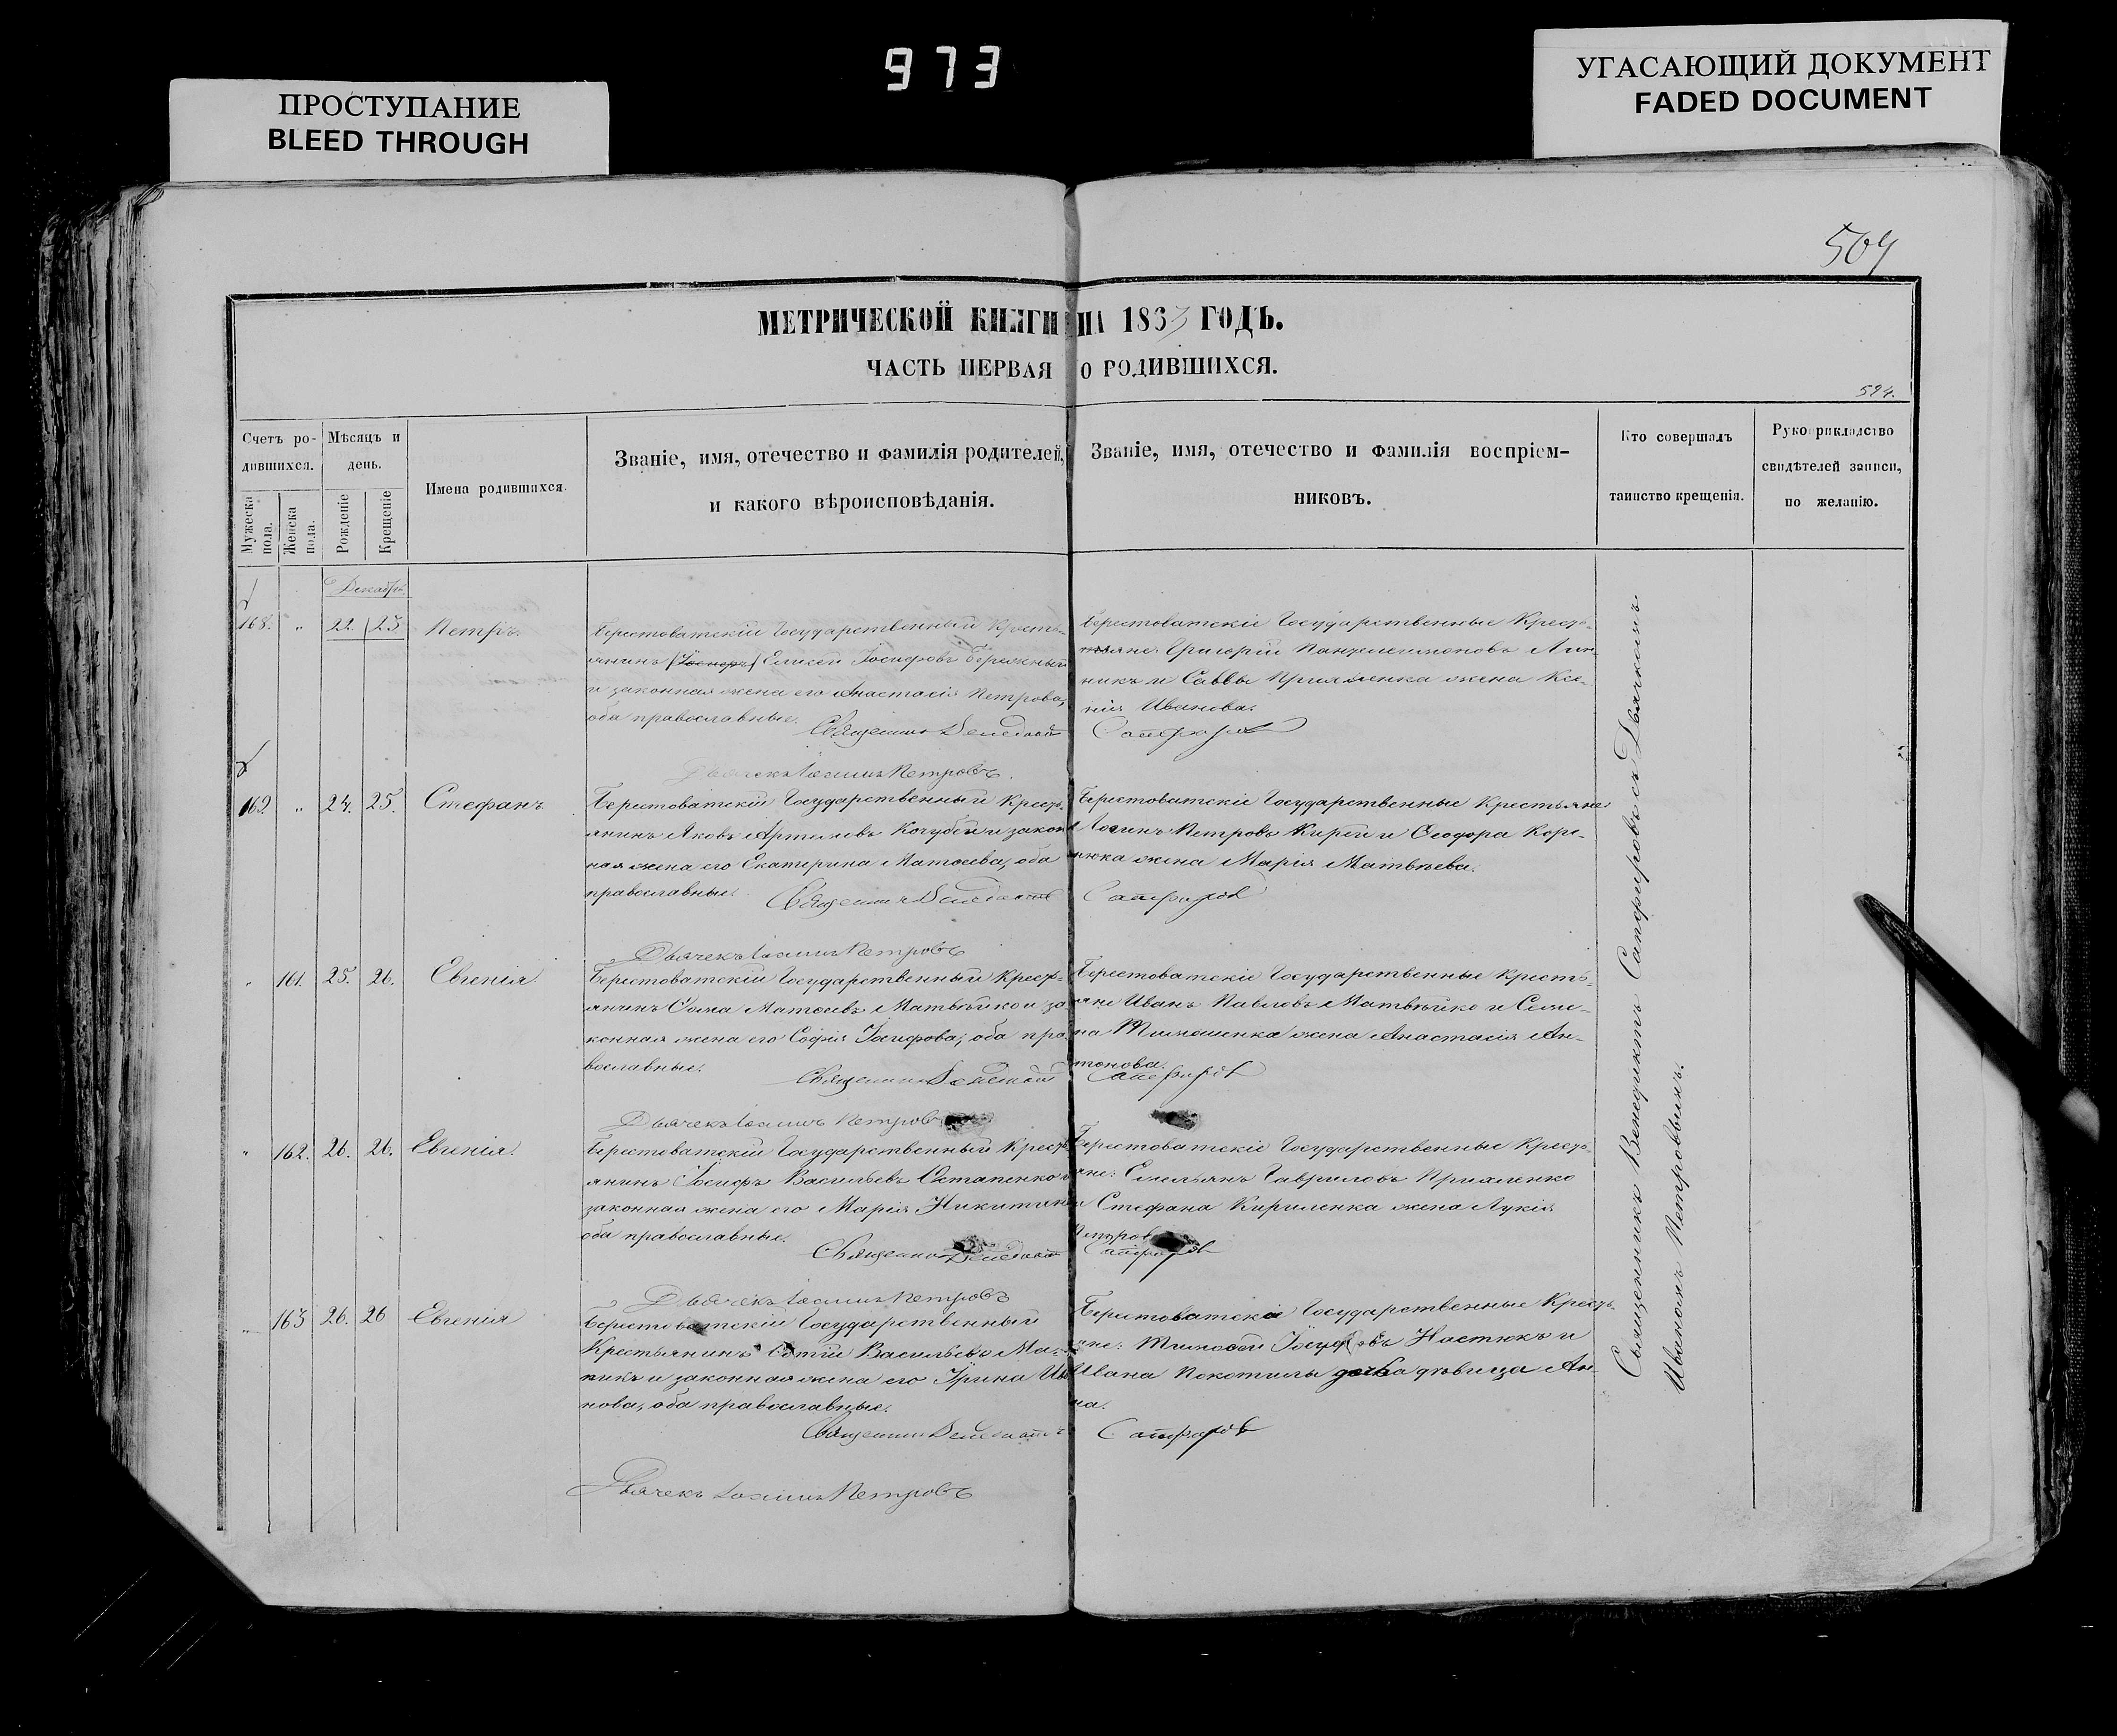 973
ПРОСТУПАНИЕ
BLEED THROUGH
УГАСАЮЩИЙ ДОКУМЕНТ
FADED DOCUMENT
МЕТРИЧЕСКОЙ КНИГИ НА 1863 ГОДЪ.
ЧАСТЬ ПЕРВАЯ О РОДИВШИХСЯ.
524.
Счетъ ро-
дившихся.
Мужеска пола.
Женска пола.
Мѣсяцъ и
день.
Рожденіе
Крещеніе
Имена родившихся.
Званіе, имя, отечество и фамилія родителей,
и какого вѣроисповѣданія.
Званіе, имя, отечество и фамилія воспріем-
никовъ.
Кто совершалъ
таинство крещенія.
Рукоприкладство
свидѣтелей записи,
по желанію.
Декабрь.
168. " 22. 23 Петръ.
Берестоватскій Государственный Кресть-
янинъ Елисей Іосифовъ Бережный
и законная жена его Анастасія Петрова,
оба православные.
Священникъ Венедиктъ Сапфировъ
Берестоватскіе Государственные Кресть-
яне: Григорій Пантелеимоновъ Лин-
никъ и Саввы Прихленка жена Ксе-
нія Иванова.
Дьячекъ Іоаннъ Петровъ.
169. " 24. 25. Стефанъ
Берестоватскій Государственный Кресть-
янинъ Яковъ Артемовъ Кочубей и закон
ная жена его Екатерина Матѳеева, оба
православные.
Священникъ Венедиктъ Сапфировъ
Берестоватскіе Государственные Крестьяне:
Логинъ Петровъ Кирѣй и Ѳеодора Коре-
нюка жена Марія Матвѣева.
Дьячекъ Іоаннъ Петровъ
" 161. 25. 26. Евгенія.
Берестоватскій Государственный Кресть-
янинъ Ѳома Матѳеевъ Матвѣйко и за-
конная жена его Софія Іосифова, оба пра-
вославные.
Священникъ Венедиктъ Сапфировъ
Берестоватскіе Государственные Кресть-
яне Иванъ Павловъ Матвѣйко и Семе-
на Тимошенка жена Анастасія Ан-
тонова.
Дьячекъ Іоаннъ Петровъ
" 162. 26. 26. Евгенія.
Берестоватскій Государственный Кресть
янинъ Іосифъ Васильевъ Остапенко и
законная жена его Марія Никитина
оба православные.
Священникъ Венедиктъ Сапфировъ
Берестоватскіе Государственные Кресть-
яне: Емельянъ Гавриловъ Прихленко
и Стефана Кириленка жена Лукія
Петрова
Дьячекъ Іоаннъ Петровъ
" 163 26. 26 Евгенія
Берестоватскій Государственный
Крестьянинъ Васильевъ
и законная жена его Ірина Ива
нова, оба православные.
Священникъ Венедиктъ Сапфировъ
Берестоватскіе Государственные Кресть-
яне: Тимоѳей Іосифовъ Настюкъ и
Ивана Покотилы дочка дѣвица Ан-
на.
Дьячекъ Іоаннъ Петровъ
Священникъ Венедиктъ Сапфировъ съ Дьячкомъ
Иваномъ Петровымъ.